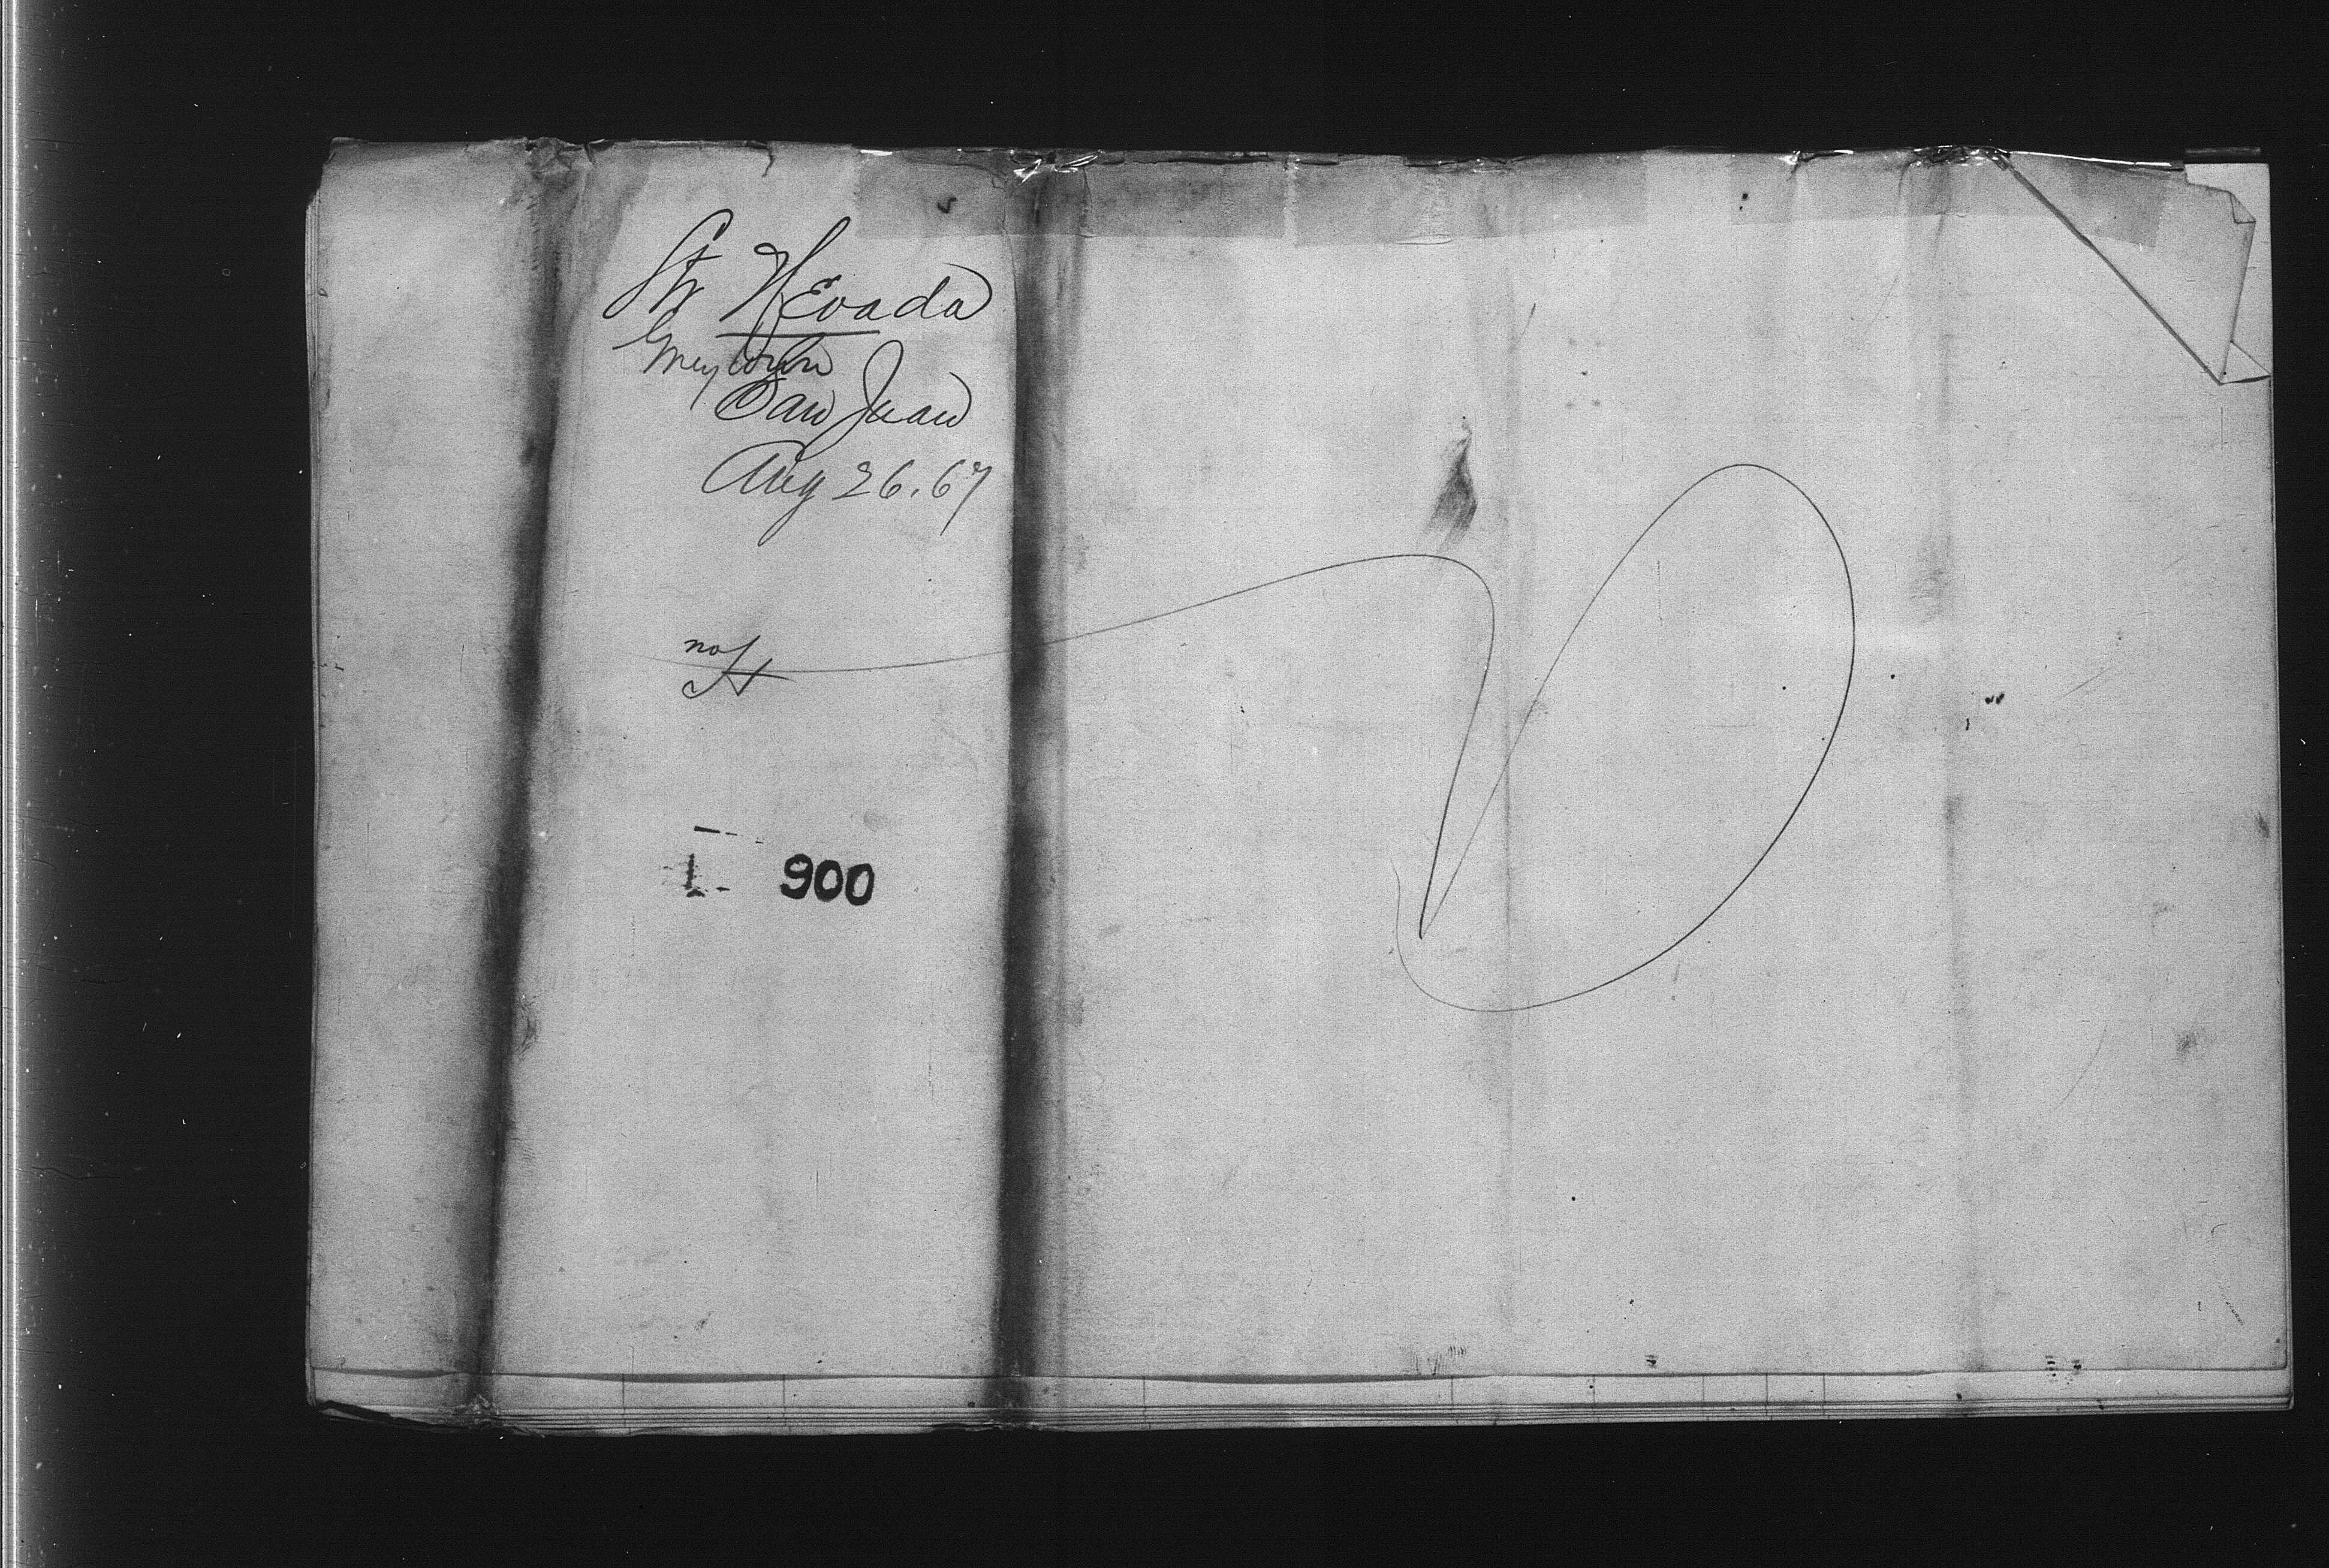 Str Nevada
Greytown
San Juan
Aug 26.67
no
900